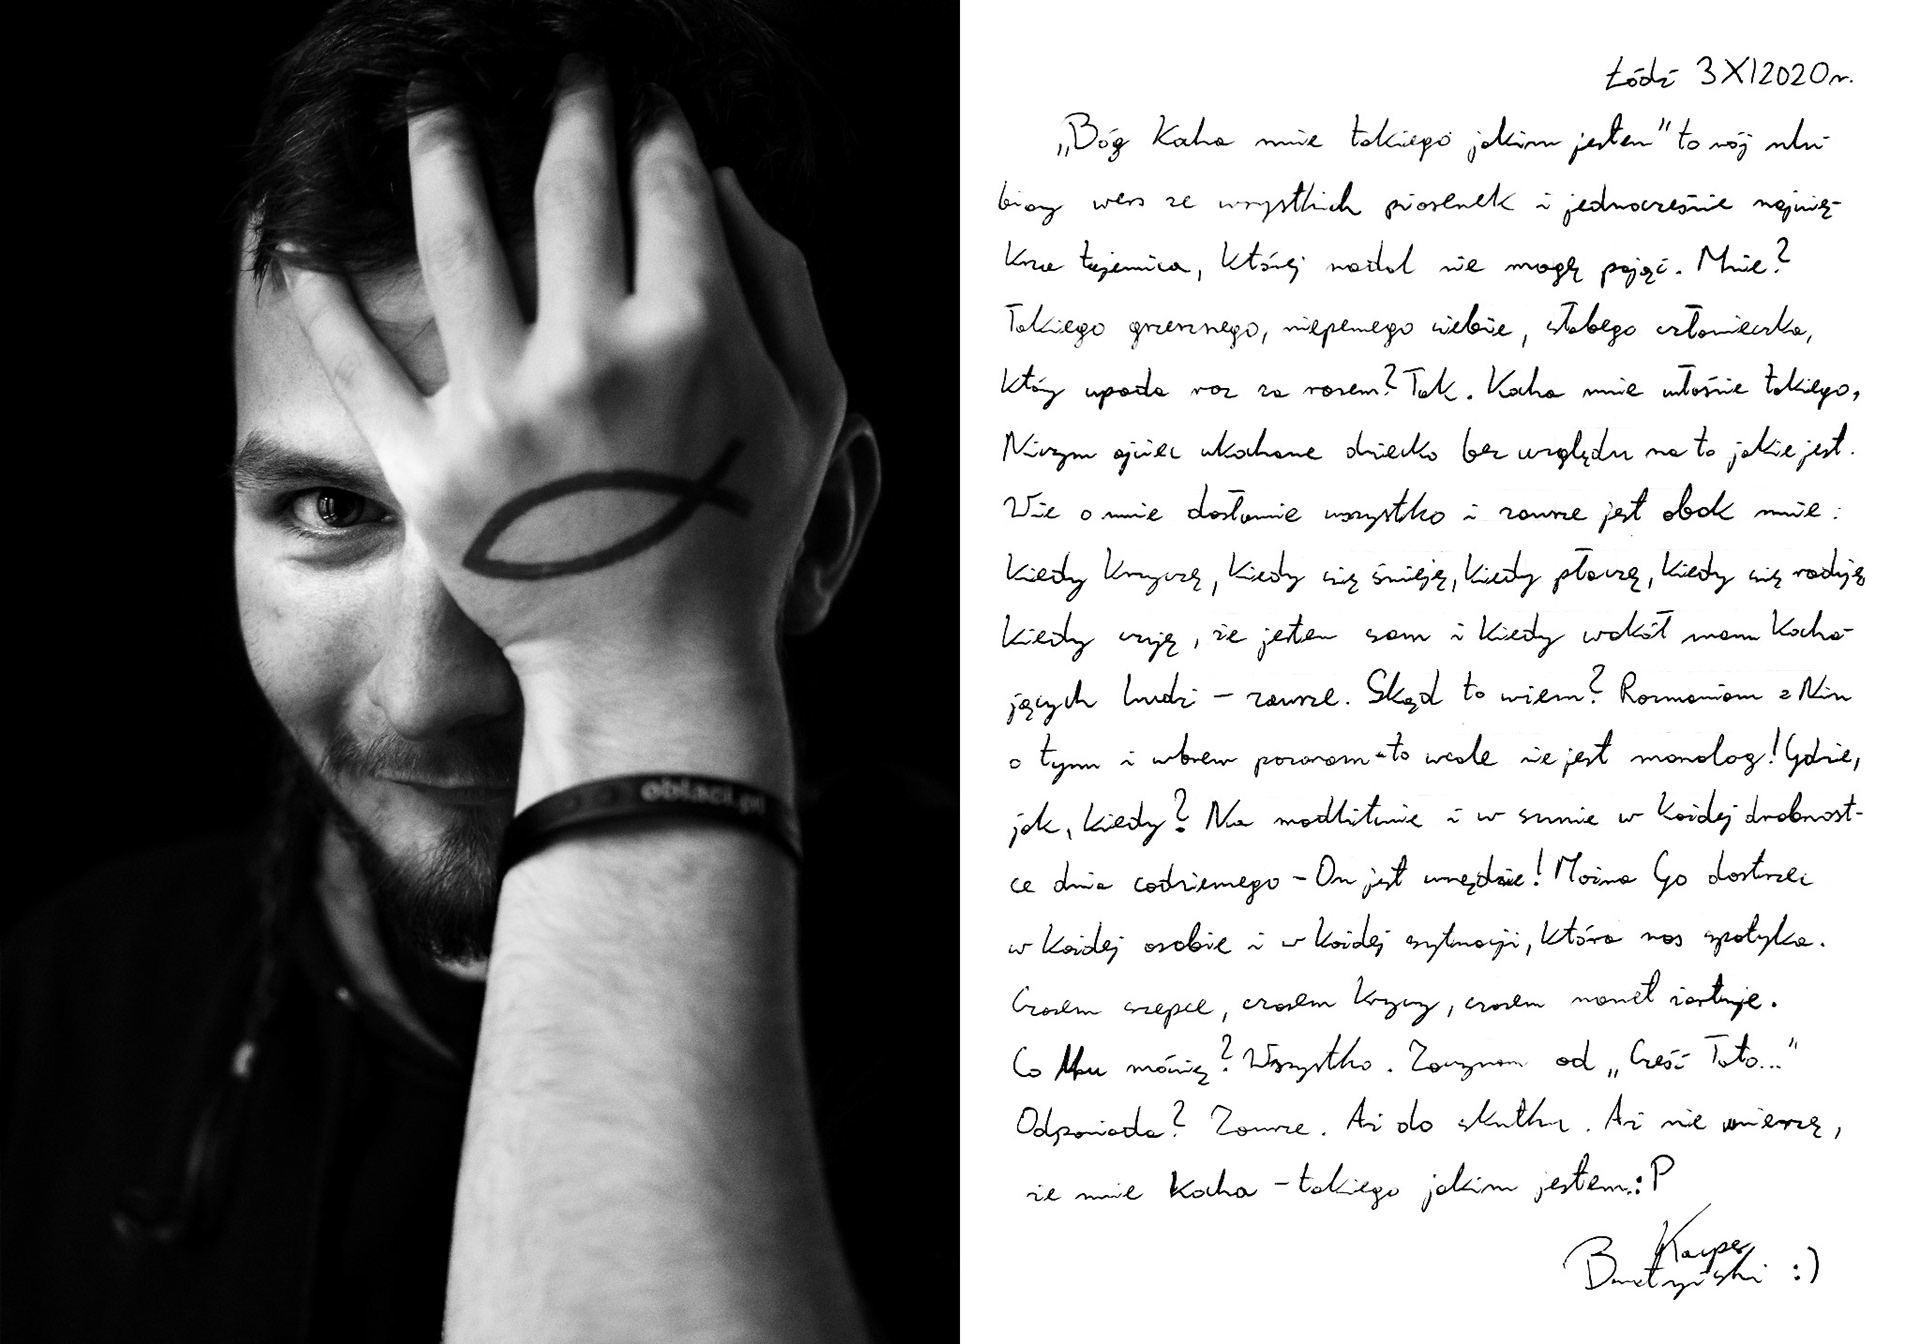 oblaci.pl
Łódź 3 XI 2020 r.
„Bóg kocha mnie takiego jakim jestem" to mój ulu-
biony wers ze wszystkich piosenek i jednocześnie najwię-
ksza tajemnica, której nadal nie mogę pojąć. Mnie?
Takiego grzesznego, niepewnego siebie, słabego człowieczka,
który upada raz za razem? Tak. Kocha mnie właśnie takiego,
Niczym ojciec ukochane dziecko bez względu na to jakie jest.
Wie o mnie dosłownie wszystko i zawsze jest obok mnie:
kiedy krzyczę, kiedy się śmieję, kiedy płaczę, kiedy się raduję
kiedy czuję, że jestem sam i kiedy wokół mam kocha-
jących ludzi – zawsze. Skąd to wiem? Rozmawiam z Nim
o tym i wbrew pozorom - to wcale nie jest monolog! Gdzie,
jak, kiedy? Na modlitwie i w sumie w każdej drobnost-
ce dnia codziennego – On jest wszędzie! Można Go dostrzec
w każdej osobie i w każdej sytuacji, która nas spotyka.
Czasem szepce, czasem krzyczy, czasem nawet żartuje.
Co Mu mówię? Wszystko. Zaczynam od „Cześć Tato..."
Odpowiada? Zawsze. Aż do skutku. Aż nie uwierzę,
że mnie kocha – takiego jakim jestem. :P
Kacper
:)